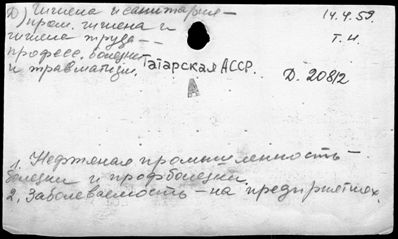 Д) Гигиена и санитария –
пром. гигиена и
гигиена труда –
професс. болезни
и травматизм.
14.4.59.
Т. Н.
Татарская АССР.
Д. 20812
А
1. Нефтяная промышленность –
болезни и профболезни.
2. Заболеваемость – на предприятиях.